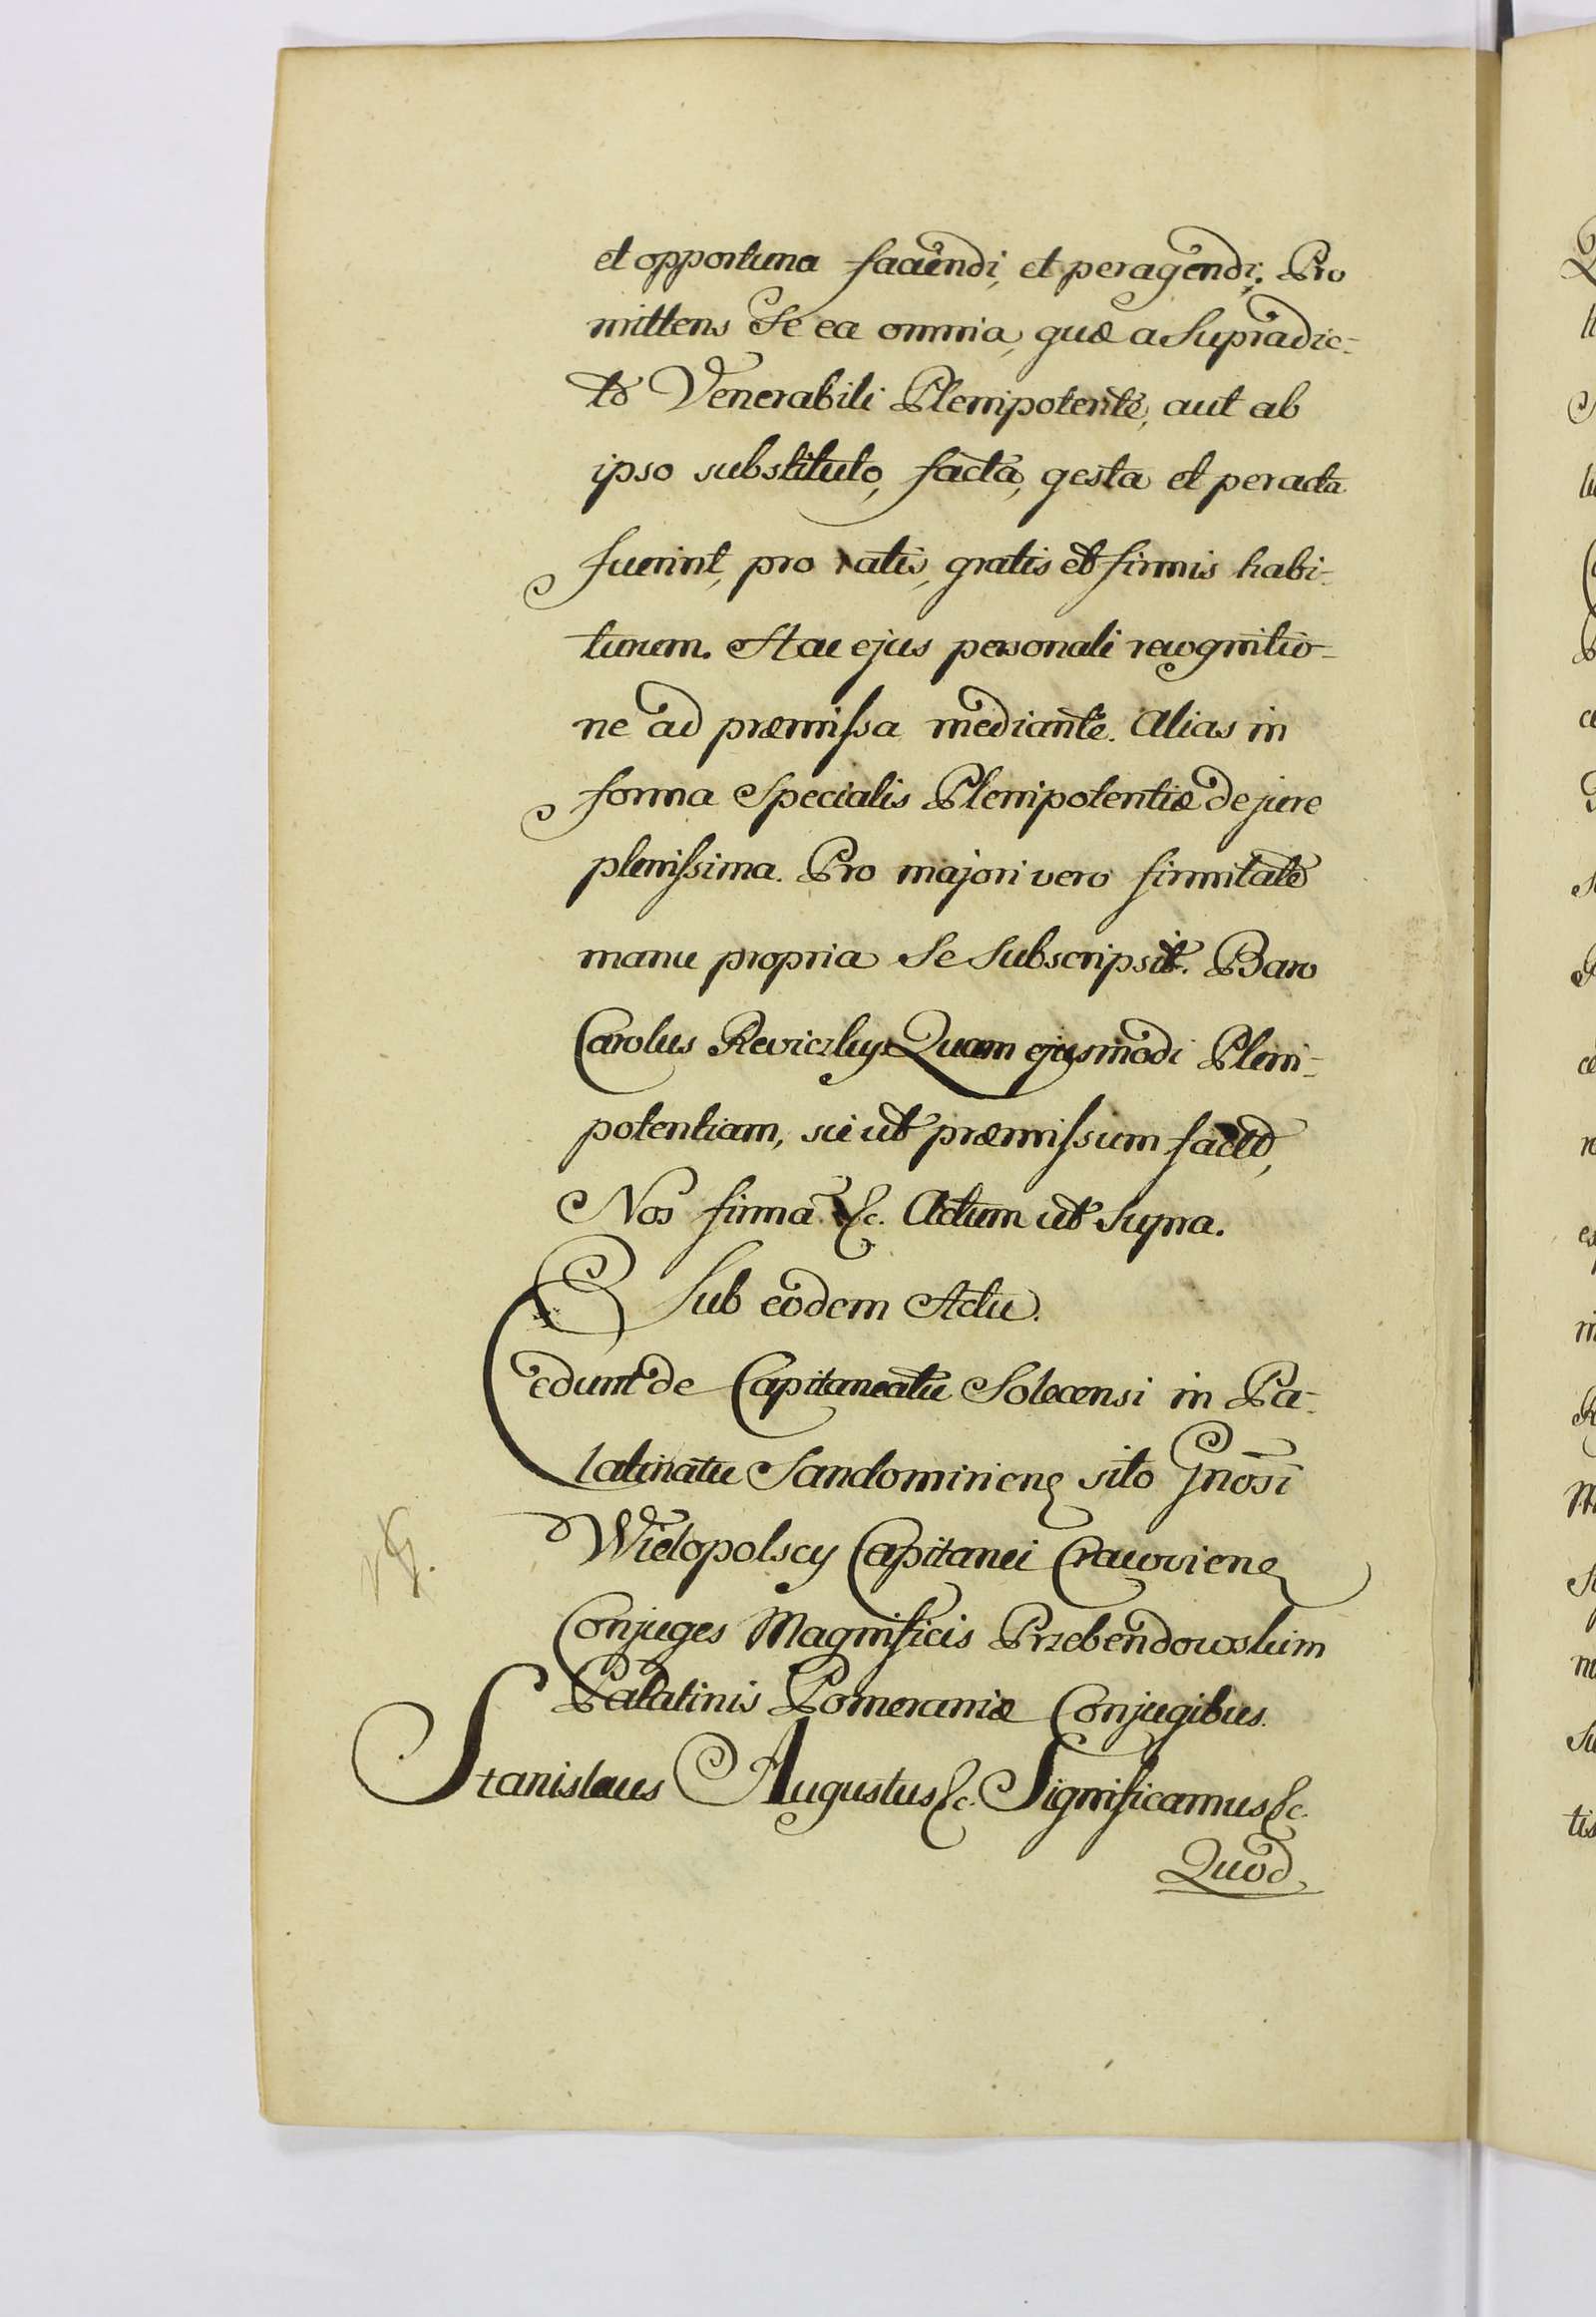 et opportuna faciendi, et peragendi; Pro
mittens Se ea omnia, quæ a Supradic-
to Venerabili Plenipotente, aut ab
ipso substituto, facta, gesta et peracta
fuerint, pro ratis, gratis et firmis habi-
turum. Hac ejus personali recognitio-
ne ad præmissa mediante. Alias in
forma Specialis Plenipotentiæ de jure
plenissima. Pro majori vero firmitate
manu propria Se Subscripsit. Baro
Carolus Reviczky Quam ejusmodi Pleni-
potentiam, sic ut præmissum facto,
Nos firma &c. Actum ut Supra.
Sub eodem Actu.
Cedunt de Capitaneatu Solecensi in Pa-
latinatu Sandomirien sito Gnōsi
Wielopolscy Capitanei Cracovien
Conjuges Magnificis Przebendowskim
Palatinis Pomeraniæ Conjugibus.
Stanislaus Augustus &c. Significamus &c.
Quod